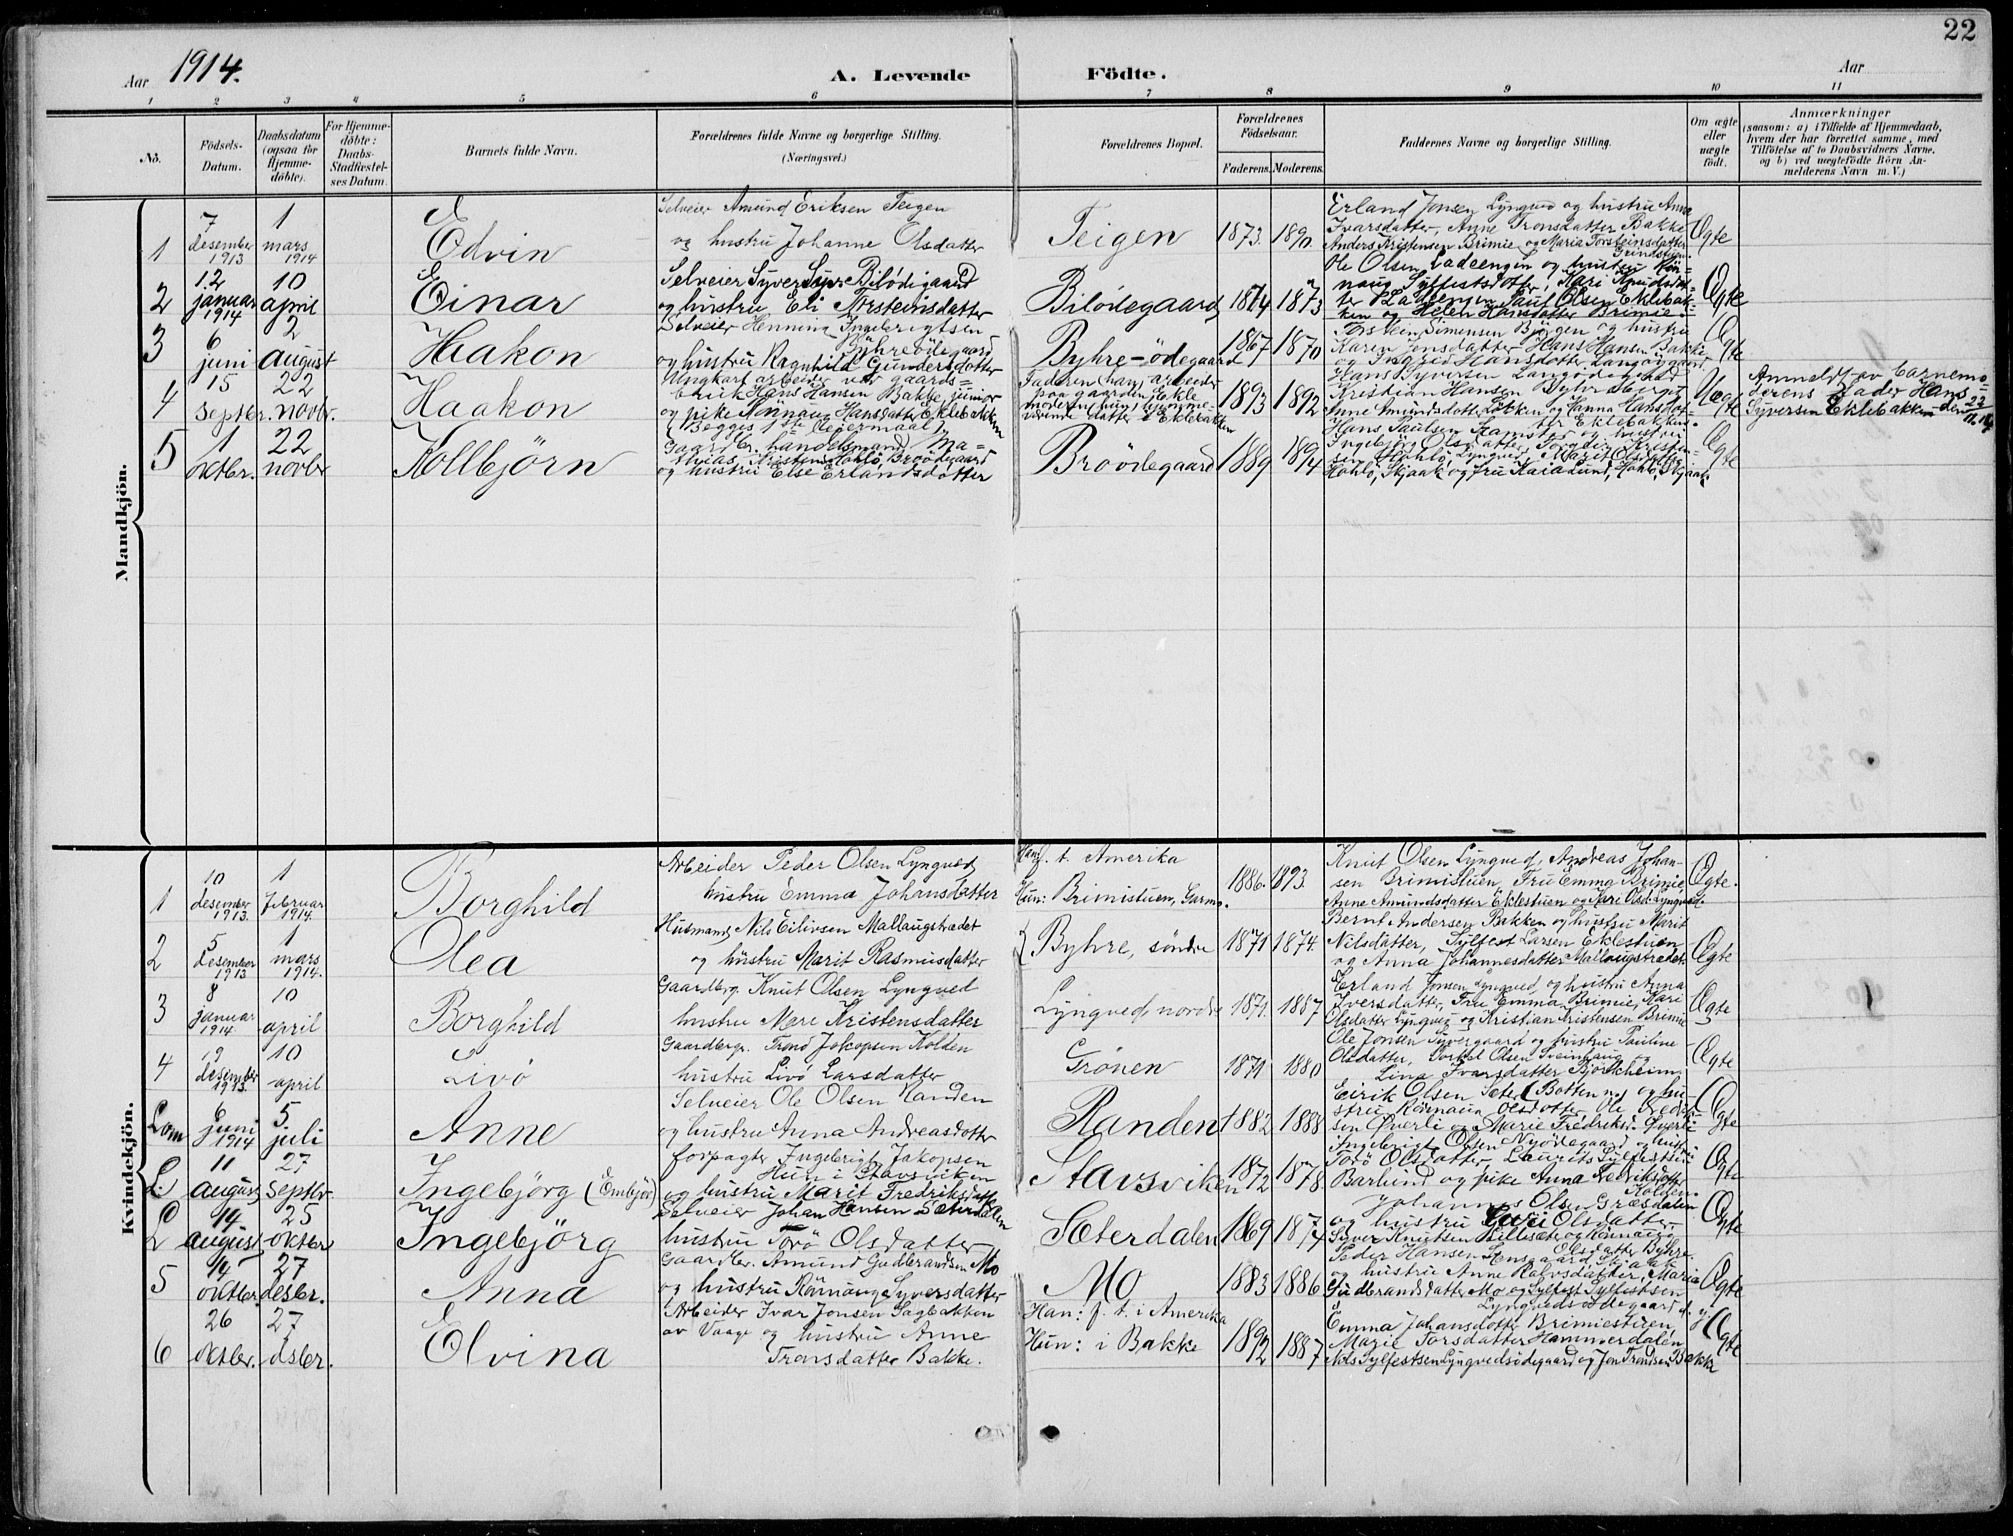 22
Aar 1914.
A. Levende Fødte.
Aar
1 2 3 4 5 6 7 8 9 10 11
No.
Fødsels-Datum.
Daabsdatum (ogsaa for Hjemmedøbte).
For Hjemmedøbte: Daabs-Stadfæstelses Datum.
Barnets fulde Navn.
Forældrenes fulde Navne og borgerlige Stilling.
(Næringsvei.)
Forældrenes Bopæl.
Forældrenes Fødselsaar.
Faderens. Moderens.
Faddernes Navne og borgerlige Stilling.
Om ægte eller uægte født.
Anmærkninger
(saasom: a) i Tilfælde af Hjemmedaab,
hvem der har forrettet samme, med
Tilføielse af to Daabsvidners Navne,
og b) ved uægtefødte Børn An-
melderens Navn m. V.)
Mandkjøn.
1
7 desember 1913
1 mars 1914
Edvin
Selveier Amund Eriksen Teigen
og hustru Johanne Olsdatter
Teigen
1873. 1890.
Erland Jonsen Lyngved og hustru Anne
Ivarsdatter, Anne Tronsdatter Bakke
Anders Kristensen Brimie og Maria Torsteinsdatter
Ægte
2
12 januar 1914
10 april
Einar
Selveier Syver Bilødegaard
og hustru Eli Torsteinsdatter
Bilødegaard
1874 1873
Ole Olsen Ladeengen og hustru Røn-
naug Sylfestsdotter, Kari Knudsdot-
ter Ladeengen, Paul Olsen Eklebak-
ken og Helen Hansdatter Brimie
Ægte
3
6 juni
2 august
Haakon
Selveier Henning Ingebrigtsen
Byhreødegaard
og hustru Ragnhild Gundersdotter
Byhre-ødegaard
1867 1870
Torstein Simensen Bjørgen og hustru
Karen Jonsdatter, Hans Hansen Bakke
og Ingrid Hansdotter
Ægte
4
15 septbr.
22 novbr.
Haakon
Ungkarl arbeider ved gaards-
bruk Hans Hansen Bakke junior
og pike Rønnaug Hansdatter Eklebakken
(Begges 1ste leiermaal).
Faderen (han) arbeider
paa gaarden Ekle
moderen (hun) hjemme-
værende datter i Eklebakken
1893 1892
Hans Syversen
Kristian Hansen
Anne Amundsdotter Løkken og Hanna Hansdot-
ter Eklebakken.
Uægte
Anmeldt av barnemo-
derens fader Hans
Syversen Eklebakken den 22/11 14
5
1 oktbr.
22 novbr
Kolbjörn
Gaardbr. handelsmand Ma-
thias Kristensen Brøødegaard
og hustru Else Erlandsdotter
Broödegaard
1889 1894
Hans Paulsen og hustru
Ingebjørg Olsdatter,
Lyngved, Marit
Skjaak og fru Kaia Lund, Skjaak.
Ægte
Kvindekjøn.
1
10 desember 1913.
1 februar 1914.
Borghild
Arbeider Peder Olsen Lyngved
hustru Emma Johansdatter
Han f. t. Amerika
Hun: Brimistuen, Garmo.
1886. 1893.
Knut Olsen Lyngved, Andreas Johan-
sen Brimistuen, Fru Emma Brimie,
Anne Amundsdatter Eklestuen og Kari Olsd. Lyngved
Ægte.
2
5 desember 1913
1 mars 1914.
Olea
Husmand Nils Eilivsen Mallaugstrædet
og hustru Marit Rasmusdatter
Byhre, søndre
1871 1874.
Bernt Andersen Bakken og hustru Marit
Nilsdatter, Sylfest Larsen Eklestuen
og Anna Johannesdatter Mallaugstrædet.
Ægte
3
8 januar 1914.
10 april
Borghild
Gaardbrg. Knut Olsen Lyngved
hustru Mari Kristensdatter
Lyngved nordre
1871. 1887
Erland Jonsen Lyngved og hustru Anna
Iversdatter, Fru Emma Brimie, Kari
Olsdatter Lyngved og Kristian Kristensen Brimie
Ægte
4
19 desember 1913.
10 april
Livø
Gaardbrgr. Trond Jakopsen Kolden
hustru Livø Larsdatter
Grönen
1871 1880
Ole Jonsen Syvergaard og hustru Pauline
Olsdatter, Torkel Olsen Sveinhaug og
Lina Ivarsdatter Bjørkheim.
Ægte
Lom
6 juni 1914
5 juli
Anne
Selveier Ole Olsen Randen
og hustru Anna Andreasdotter
Randen
1882 1888
Eirik Olsen Sæter (Botten n.) og hu-
stru Rønnaug Olsdotter, Ole Fredrik-
sen Øverli og Marie Fredriksd. Øverli
Ægte
L.
11 august
27 septbr.
Ingebjörg (Embjør)
Forpagter Ingebrigt Jakopsen
Hun i Stavsviken
og hustru Marit Fredriksdatter
Stavsviken
1872 1878
Ingebrigt Olsen Nyødegaard og hustru
Torø Olsdatter, Laurits Sylfestsen
Barlund og pike Anna Fredriksdotter
Kolden.
Ægte
L
14 august
25 oktbr
Ingebjörg
Selveier Johan Hansen Sæterdalen
hustru Torö Olsdatter
Sæterdalen
1869 1874
Johannes Olsen Græsdalen
og hustru Guri Olsdatter.
Syver Knutsen Lillesæter og Rønnaug
Olsdatter Byhre.
Ægte
5
14 oktbr.
27 desbr.
Anna
Gaardbr. Amund Gudbrandsen Mo
og hustru Rønnaug Syversdatter
Mo
1883 1886
Peder Hansen Skjaak
og hustru Anne, Maria
Gudbrandsdatter Mo og Sylfest Sylfestsen
Lyngvedsødegaard
Ægte
6
26 oktbr.
27 dsbr.
Elvina
Arbeider Ivar Jonsen Sagbakken
av Vaage og hustru Anne
Tronsdatter Bakke.
Han: f. t. i Amerika
Hun: i Bakke
1892 1887
Emma Johansdotter Brimiestuen,
Marie Torsdatter Hammerdalen,
Nils Sylfestsen Lyngvedsødegaard og Jon Trondsen Bakke
Ægte